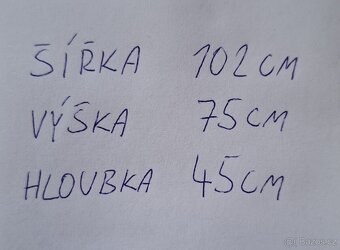 ŠÍŘKA 102 CM
VÝŠKA 75 CM
HLOUBKA 45 CM